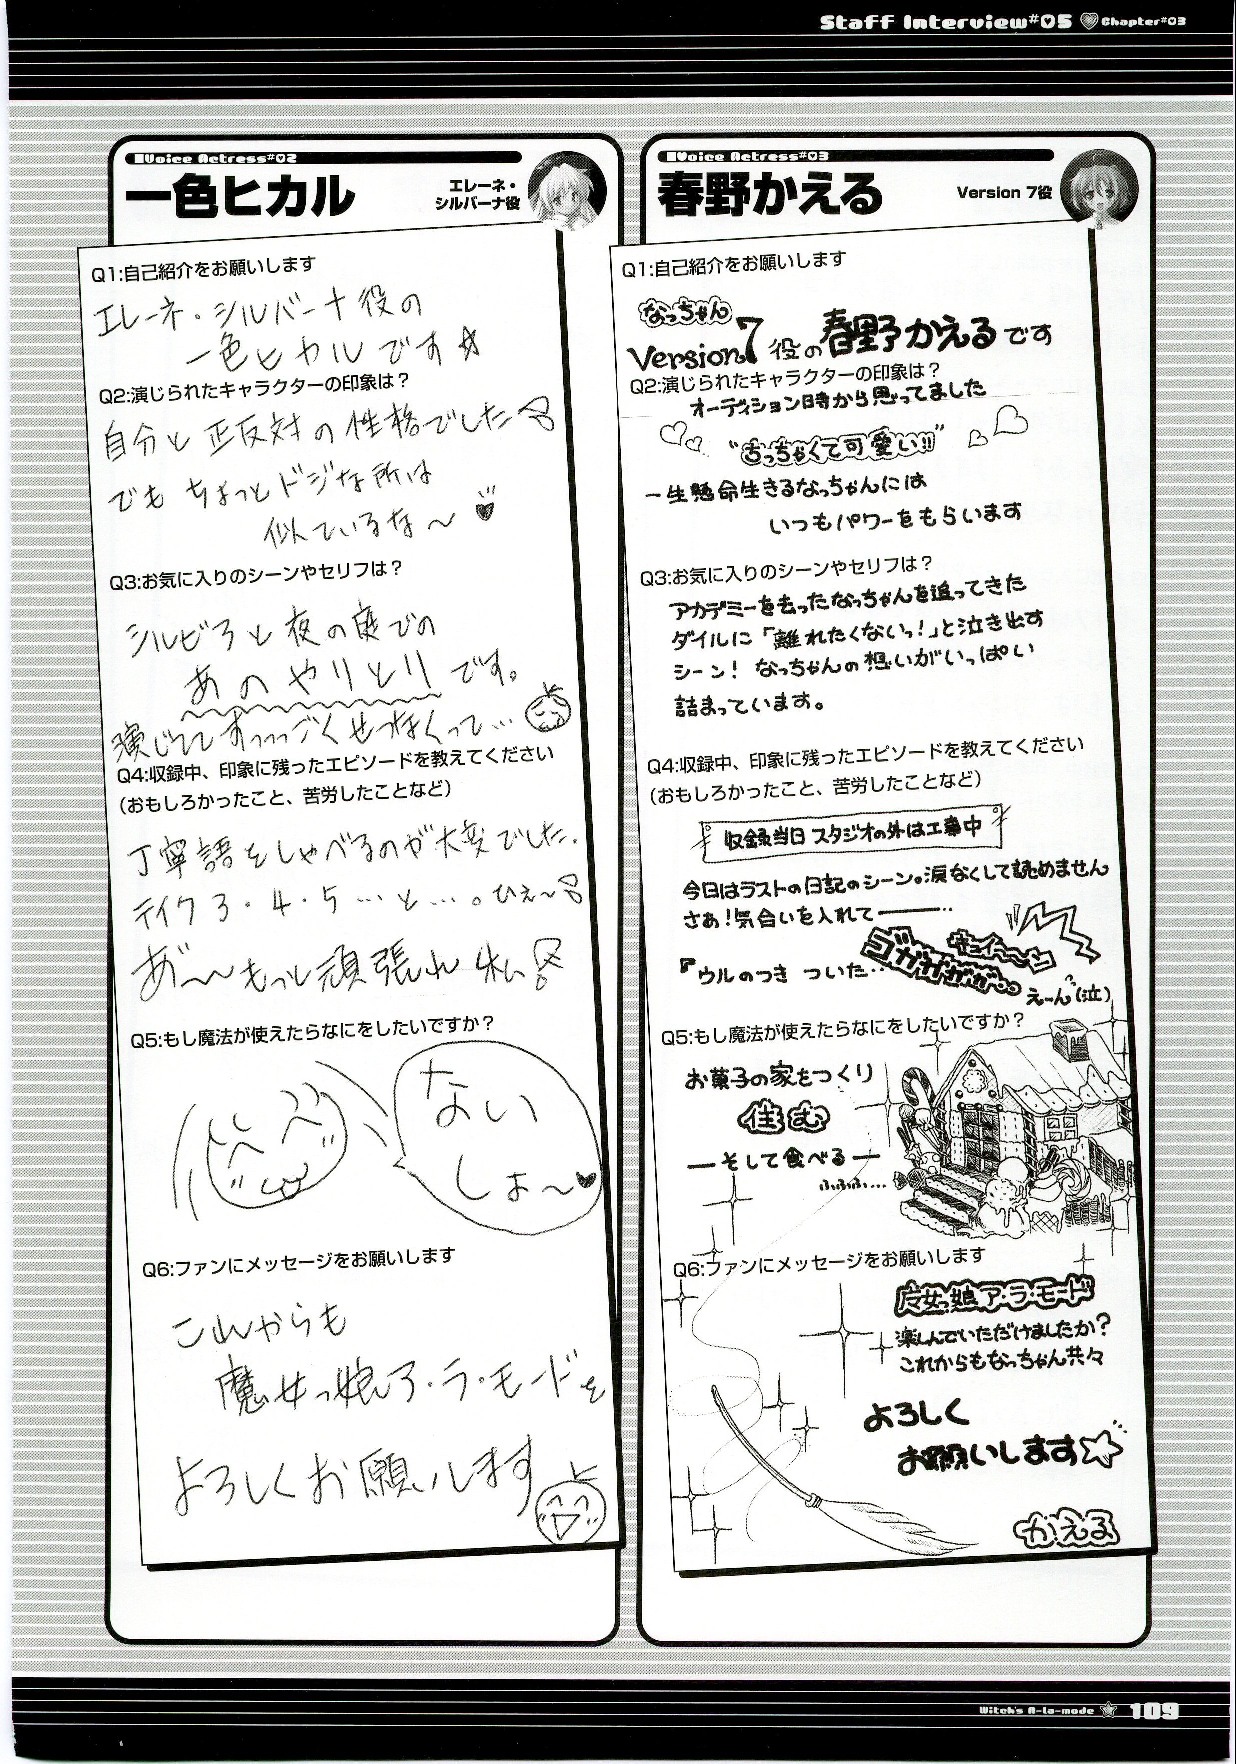 Staff Interview#05 Chapter#03
Voice Actress#02
一色ヒカル
エレーネ・
シルバーナ役
Q1:自己紹介をお願いします
エレーネ・シルバーナ役の
一色ヒカルです☆
Q2:演じられたキャラクターの印象は？
自分と正反対の性格でした
でもちょっとドジな所は
似ているな〜♥
Q3:お気に入りのシーンやセリフは？
シルビアと夜の庭での
あのやりとりです。
演じててすっっっごくせつなくって…
Q4:収録中、印象に残ったエピソードを教えてください
（おもしろかったこと、苦労したことなど）
丁寧語をしゃべるのが大変でした.
テイク3・4・5…と…。ひぇ〜
あ゛〜〜もっと頑張れ私
Q5:もし魔法が使えたらなにをしたいですか？
ない
しょ〜♥
Q6:ファンにメッセージをお願いします
これからも
魔女っ娘ア・ラ・モードを
よろしくお願いします
Voice Actress#03
春野かえる
Version 7役
Q1:自己紹介をお願いします
なっちゃん
Version7役の春野かえるです
Q2:演じられたキャラクターの印象は？
オーディション時から思ってました
“ちっちゃくて可愛い!!”
一生懸命生きるなっちゃんには
いつもパワーをもらいます
Q3:お気に入りのシーンやセリフは？
アカデミーを去ったなっちゃんを追ってきた
ダイルに「離れたくないっ!」と泣き出す
シーン! なっちゃんの想いがいっぱい
詰まっています。
Q4:収録中、印象に残ったエピソードを教えてください
（おもしろかったこと、苦労したことなど）
収録当日 スタジオの外は工事中
今日はラストの日記のシーン。涙なくして読めません
さぁ!気合いを入れて――‥
『ウルのつき ついた‥
ゴガガガガガ‥
キュイーーン
えーん(泣)
Q5:もし魔法が使えたらなにをしたいですか？
お菓子の家をつくり
住む
―そして食べる―
ふふふ…
Q6:ファンにメッセージをお願いします
魔女っ娘ア・ラ・モード
楽しんでいただけましたか?
これからもなっちゃん共々
よろしく
お願いします☆
かえる
Witch's A-la-mode 109